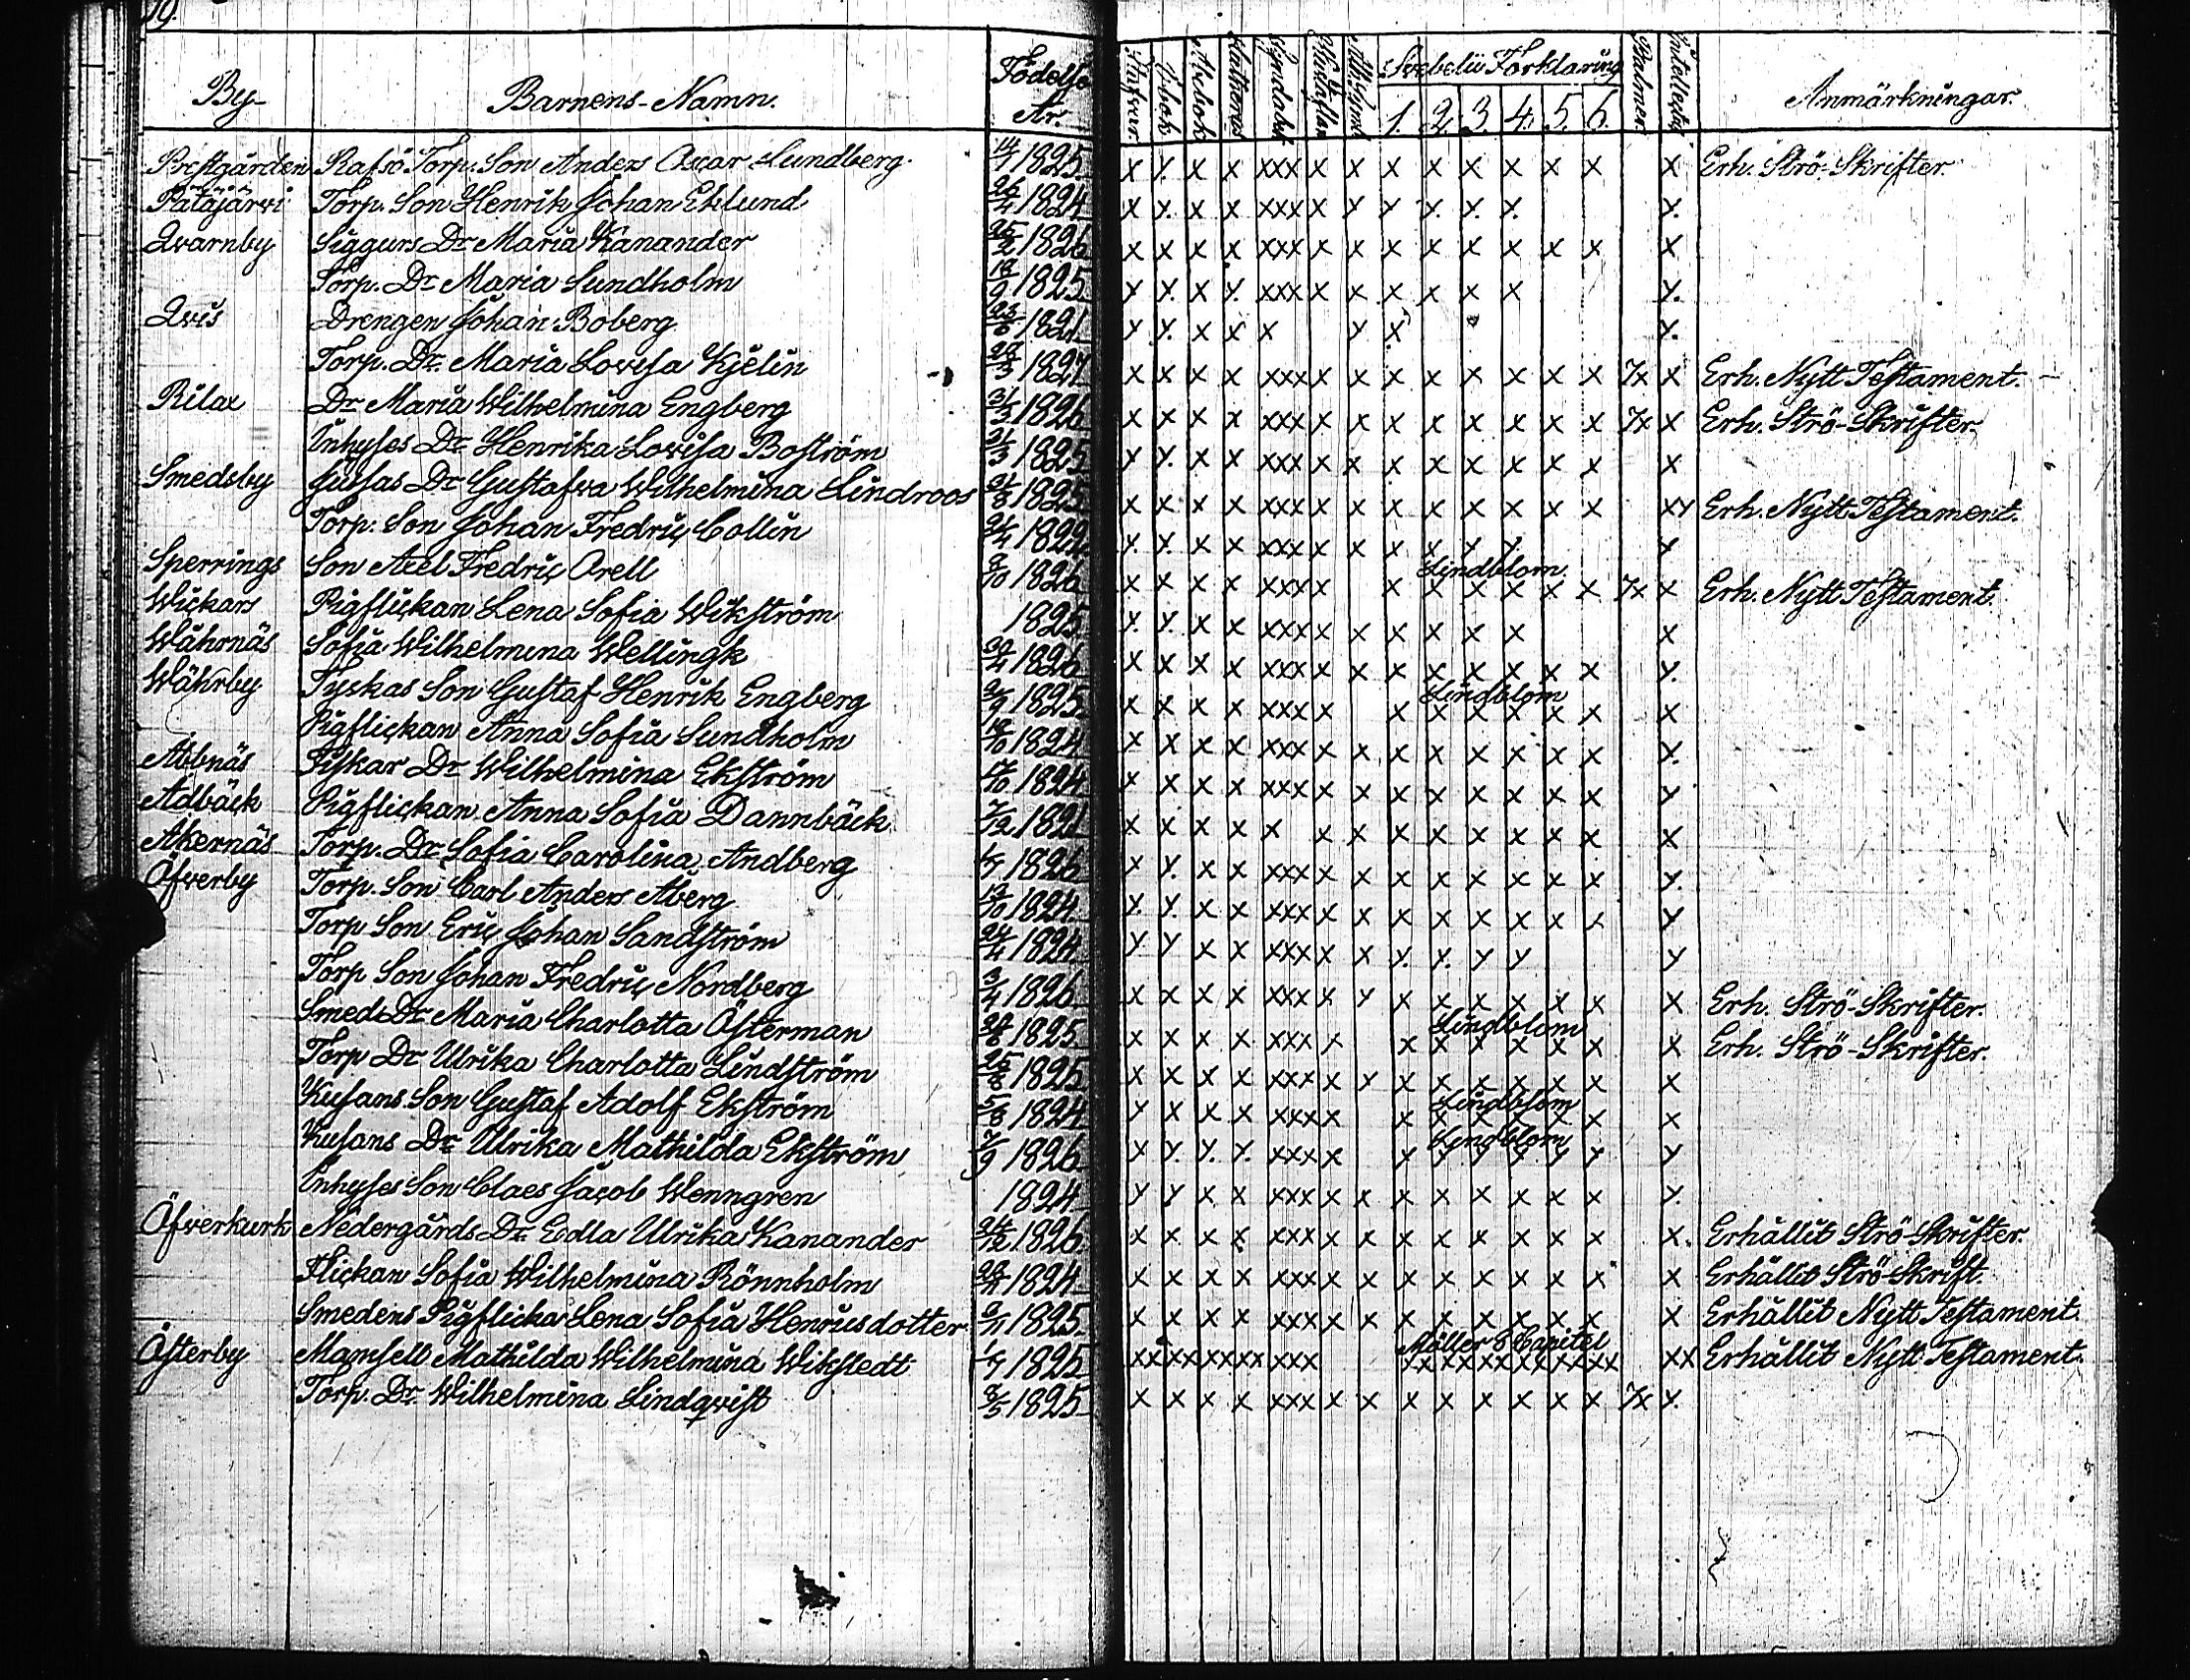 19.
By Barnens-Namn. Födelse År. Stafvar I bok Abcbok Svebelii Förklaring 1. 2. 3. 4. 5. 6. Psalmer. Anmärkningar.
Prestgården Rafsö Torp. Son Anders Oscar Lundberg. 14/7 1825 x y. x x xxx x x x x x x x x x Erh. Strö-Skrifter.
Pätäjärvi Torp. Son Henrik Johan Eklund 26/4 1824 x y. x x xxx x y y y. y. y. y.
Qvarnby Siggurs Dr Maria Kanander 25/2 1826 x x x x xxx x x x x x x x x x
Torp. Dr Maria Sundholm 18/9 1825 y y. x y. xxx x x x x x x y.
Qvis Drengen Johan Boberg 1821 y y. x x x y x y.
Torp. Dr. Maria Lovisa Kjelin 1827 x x x x xxx x x x x x x x x 7x x Erh. Nytt Testament.
Rilax Dr Maria Wilhelmina Engberg 31/3 1826 x x x x xxx x x x x x x x x 7x x Erh. Strö-Skrifter.
Inhyses Dr Henrika Lovisa Boström 31/3 1825 y y. x x xxx x x x x x x x x x
Smedsby Jussas Dr Gustafva Wilhelmina Lindroos 31/8 1825 x x x x xxx x x x x x x x x xy Erh. Nytt Testament.
Torp. Son Johan Fredric Collin 1822 y. y. x x xxx x x x x y y y
Sperrings Son Axel Fredric Orell 1826 x x x x xxx x Lindblom. x x x x x x 7x x Erh. Nytt Testament.
Wickars Pigflickan Lena Sofia Wikström 1825 y. y. x x xxx x x x x x x x
Wåhrnäs Sofia Wilhelmina Wellingk 30/4 1826 x x x x xxx x x x x x x x x y.
Wåhrby Tyskas Son Gustaf Henrik Engberg 1825 x x x x xxx x Lindblom x x x x x x x
Pigflickan Anna Sofia Sundholm 18/10 1824 x x x x xxx x x x x x x x x y.
Åbbnäs Fiskar Dr Wilhelmina Ekström 17/10 1824 x x x x xxx x x x x x x x x y
Ådbäck Pigflickan Anna Sofia Dannbäck 7/12 1821 x x x x x x x x x x x x x x
Åkernäs Torp. Dr Sofia Carolina Andberg 1826 x y. x x xxx x x x x x x x x y.
Öfverby Torp. Son Carl Anders Åberg 13/10 1824 y. y. x x xxx x x x x x x x x y
Torp Son Eric Johan Sandström 24/4 1824 y y x x xxx x x y. y. y y y
Torp Son Johan Fredric Nordberg 3/4 1826 x x x x xxx x y x x x x x x x Erh. Strö-Skrifter.
Smeds Dr Maria Charlotta Österman 1825 x x x x xxx x Lindblom x x x x x x x Erh. Strö-Skrifter.
Torp Dr Ulrika Charlotta Lindström 25/8 1825 x x x x xxx x y x x x x x x x
Kusans Son Gustaf Adolf Ekström 5/8 1824 y x x x xxx x Lindblom x x x x x x x
Kusans Dr Ulrika Mathilda Ekström 7/9 1826 x y. y. y. xxx x Lindblom y y y y y y y
Inhyses Son Claes Jacob Wenngren 1824 y y x x xxx x x x x x x x x y.
Öfverkurk Nedergårds Dr Edla Ulrika Kanander 24/12 1826 x x x x xxx x x x x x x x x x. Erhållit Strö-Skrifter.
Flickan Sofia Wilhelmina Rönnholm 1824 x x x x xxx x x x x x x x x x Erhållit Strö-Skrift.
Smedens Pigflicka Lena Sofia Henricsdotter 1825 x x x x xxx x x x x x x x x x Erhållit Nytt Testament.
Österby Mamsell Mathilda Wilhelmina Wikstedt 1825 xx xx xx xx xxx Möller 8 Capitel xx xx xx xx xx xx xx Erhållit Nytt Testament.
Torp. Dr. Wilhelmina Lindqvist 3/5 1825 x x x x xxx x x x x x x x x 7x y.